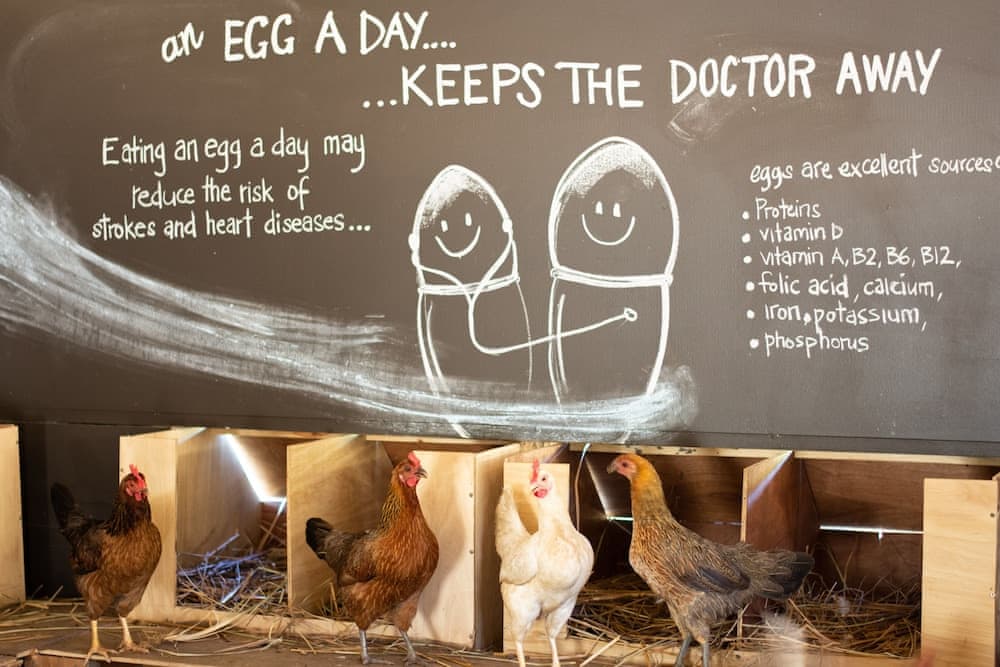 an EGG A DAY....
...KEEPS THE DOCTOR AWAY
Eating an egg a day may
reduce the risk of
strokes and heart diseases...
eggs are excellent sources
• Proteins
• vitamin D
• vitamin A, B2, B6, B12,
• folic acid, calcium,
• iron, potassium,
• phosphorus